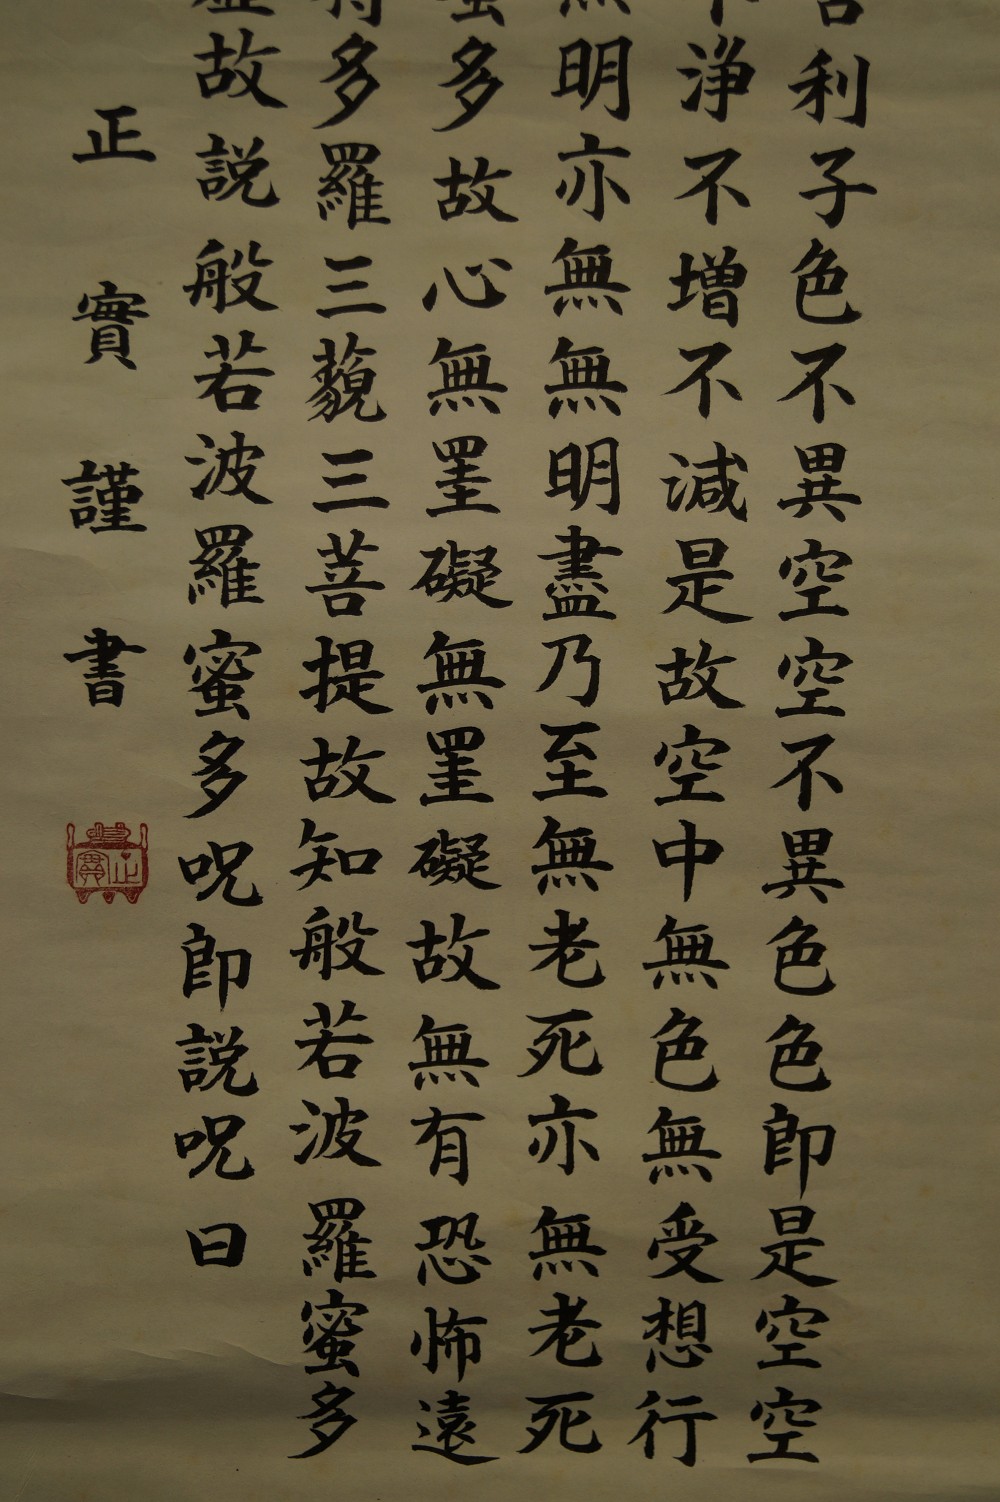 舎利子色不異空空不異色色即是空空
不浄不増不減是故空中無色無受想行
無明亦無無明盡乃至無老死亦無老死
蜜多故心無罣礙無罣礙故無有恐怖遠
得多羅三藐三菩提故知般若波羅蜜多
虚故説般若波羅蜜多呪即説呪曰
正實謹書
正實